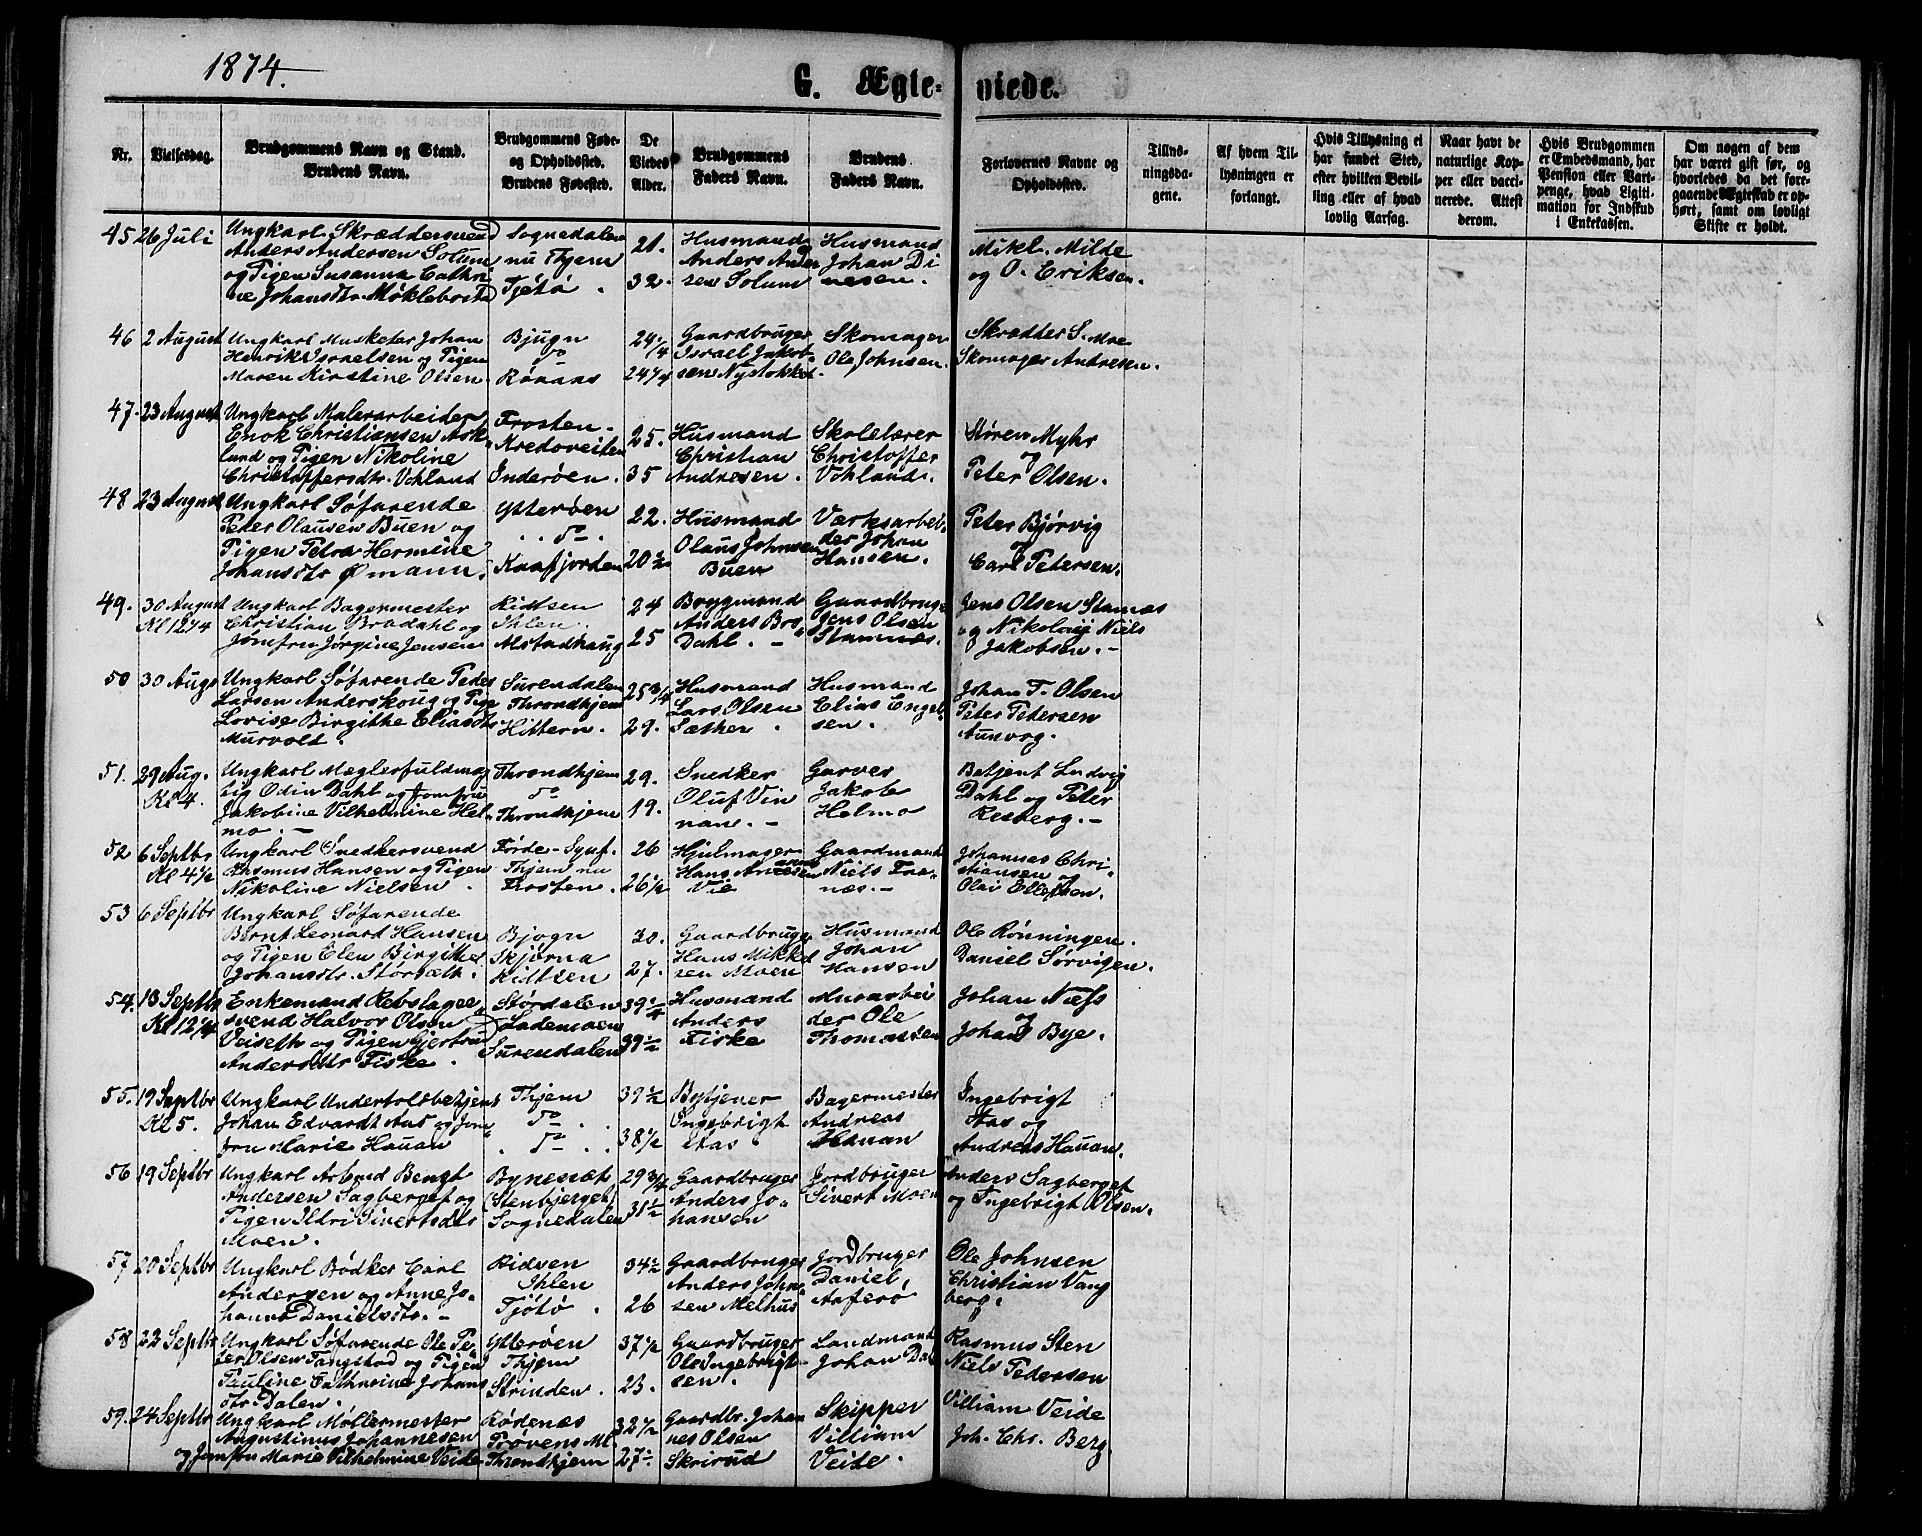 1874.
G. Ægte-viede.
Nr.
Vielsesdag.
Brudgommens Navn og Stand.
Brudens Navn.
Brudgommens Føde-
og Opholdssted.
Brudens Fødested.
De
Viedes
Alder.
Brudgommens
Faders Navn.
Brudens
Faders Navn.
Forlovernes Navne og
Opholdssted.
Tillys-
ningsda-
gene.
Af hvem Til-
lysningen er
forlangt.
Hvis Tillysning ei
har fundet Sted,
efter hvilken Bevil-
ling eller af hvad
lovlig Aarsag.
Naar havt de
naturlige Kop-
per eller vacci-
nerede. Attest
derom.
Hvis Brudgommen
er Embedsmand, har
Pension eller Vart-
penge, hvad Ligiti-
mation for Indskud
i Enkekassen.
Om nogen af dem
har været gift før, og
hvorledes da det fore-
gaaende Ægteskab er op-
hørt, samt om lovligt
Skifte er holdt.
45 26 Juli
Ungkarl Skræddersvend
Anders Andersen Solum
og Pigen Susanna Cathri
ne Johansdtr. Møklebost
Sognedalen
nu Thjem
Tjøtø.
21.
32.
Husmand
Anders Ander
sen Solum
Husmand
Johan Di
nesen.
Mikl. Milde
og O. Eriksen.
46 2 August
Ungkarl Musketer Johan
Henrik Israelsen og Pigen
Maren Kirstine Olsen.
Bjugn
do
Røraas
24 1/4
24 1/4
Gaardbruger
Israel Jakob-
sen Nystokket.
Skomager
Ole Johnsen.
Skrædder S. Moe
Skomager Andresen.
47. 23 August
Ungkarl Malerarbeider
Enok Christiansen Ask
lund og Pigen Nikoline
Christoffersdtr. Vohland
Frosten.
Kredoveiten
Inderøen.
25.
35
Husmand
Christian
Andresen.
Skolelærer
Christoffer
Vohland.
Støren Myhr
og
Peter Olsen.
48 23 August
Ungkarl Søfarende
Peter Olausen Buen og
Pigen Petra Hermine
Johansdtr Ømann.
Ytterøen
do.
Kaafjorden
22.
20 1/2
Husmand
Olaus Johnsen
Buen
Værksarbei-
der Johan
Hansen.
Peter Bjørvig
og
Carl Petersen.
49. 30 August
Kl 12 1/4
Ungkarl Bagermester
Christian Brodahl og
Jomfru Jørgine Jensen
Ridsen
Ihlen.
Alstadhaug
24
25
Brygmand
Anders Bro
Dahl. -
Gaardbruge
Jens Olsen
Stamnes.
Jens Olsen Stamnes
og Nikolay Niels
Jakobsen. -
50 30 Augs
Ungkarl Søfarende Peder
Larsen Anderskoug og Pige
Lovise Birgithe Eliasdtr
Murvold.
Surendalen
Throndhjem
Hittern.
25 3/4
29.
Husmand
Lars Olsen
Sæther
Husmand
Elias Engel-
sen.
Johan T. Olsen
Peter Petersen
Aunvog.
51. 29 Aug.
Kl 4.
Ungkarl Mæglerfuldmæg
tig Odin Dahl og Jomfru
Jakobine Vilhelmine Hel-
mo. -
Throndhjem
do
Throndhjem
29.
19.
Snedker
Oluf Vin
nan. -
Garver
Jakob
Helmo
Betjent Ludvig
Dahl og Peter
Resberg. -
52 6 Septbr
Kl 4 1/2
Ungkarl Snedkersvend
Rasmus Hansen og Pigen
Nikoline Nielsen.
Førde - Synf.
Thjem nu
Frosten.
26
26 1/2
Hjulmager
Hans Andersen
Vie
Gaardmand
Niels Fra-
næs. -
Johannes Chri-
stiansen og
Olai Ellefsen.
53 6 Septbr
Ungkarl Søfarende
Bernt Leonard Hansen
og Pigen Elen Birgitte
Johansdtr. Storsæth.
Bjogn
Skjørna
Ridtsen
30.
27.
Gaardbruge
Hans Mikkel
sen Moen
Husmand
Johan
Hansen
Ole Rønningen.
Daniel Sørvigen.
54. 13 Septbr
Kl 12 1/4
Enkemand Rebslager
svend Halvor Olsen
Veiseth og Pigen Gjertrud
Andersdtr Fiske.
Størdalen
Lademoen
Surendalen
39 1/4
39 1/2
Husmand
Anders
Fiske
Murarbei
der Ole
Thomassen
Johan Næss
og
Johan Bye.
55. 19 Septbr
Kl 5.
Ungkarl Undertoldbetjent
Johan Edvardt Aas og Jom-
fru Marie Hauan
Thjem
do
do
39 1/2
38 1/2
Bytjener
Ingebrigt
Aas
Bagermester
Andreas
Hauan
Ingebrigt
Aas og
Andreas Hauan.
56 19 Septbr
Ungkarl Arbmd Bengt
Andersen Sagberget og
Pigen Ildri Sivertsdtr
Moen.
Bynesæt
(Stenbjerget)
Sognedalen
29 3/4
31 1/2
Gaardbruger
Anders Jo-
hansen
Jordbruger
Sivert Moen
Anders Sagberget
og Ingebrigt Olsen.
57 20 Septbr
Ungkarl Bødker Carl
Andersen og Anne Jo-
hanne Danielsdtr. -
Ridsen
Ihlen
Tjøtø.
34 1/2
26
Gaardbruger
Anders John-
sen Melhus
Jordbruger
Daniel
Ole Johnsen
Christian Vang
berg.
58 22 Septbr
Ungkarl Søfarende Ole Pe-
ter Olsen Tangstad og Pigen
Pauline Catharine Johans
dtr Dalen.
Ytterøen
Thjem
Strinden.
37 1/2
23.
Gaardbruger
Ole Ingebrigt-
sen.
Landmand
Johan Dal
Rasmus Sten
Niels Pedersen
59. 24 Septbr
Ungkarl Møllermester
Augustinus Johannesen
og Jomfru Marie Vilhelmine Veide
Rødenæs
Prøvens Ml
Throndhjem
32 1/2
27 1/2
Gaardbr. Johan
nes Olsen
Skrirud
Skipper
Villiam
Veide.
Villiam Veide
Joh. Chr. Berg.